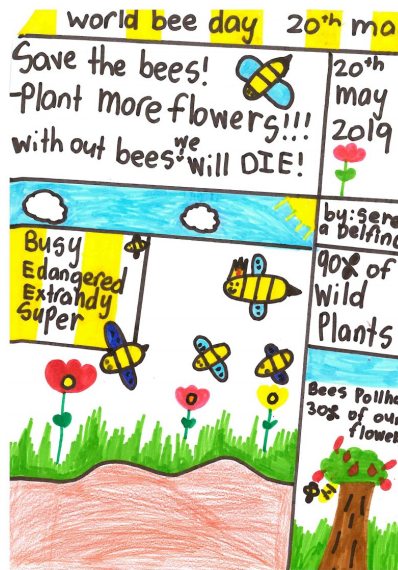 world bee day 20th ma
Save the bees!
Plant more flowers!!!
with out bees we will DIE!
20th
may
2019
by: sere
a Delfino
Busy
Edangered
Extrandy
Super
90% of
Wild
Plants
Bees Pollhe
30% of our
flower